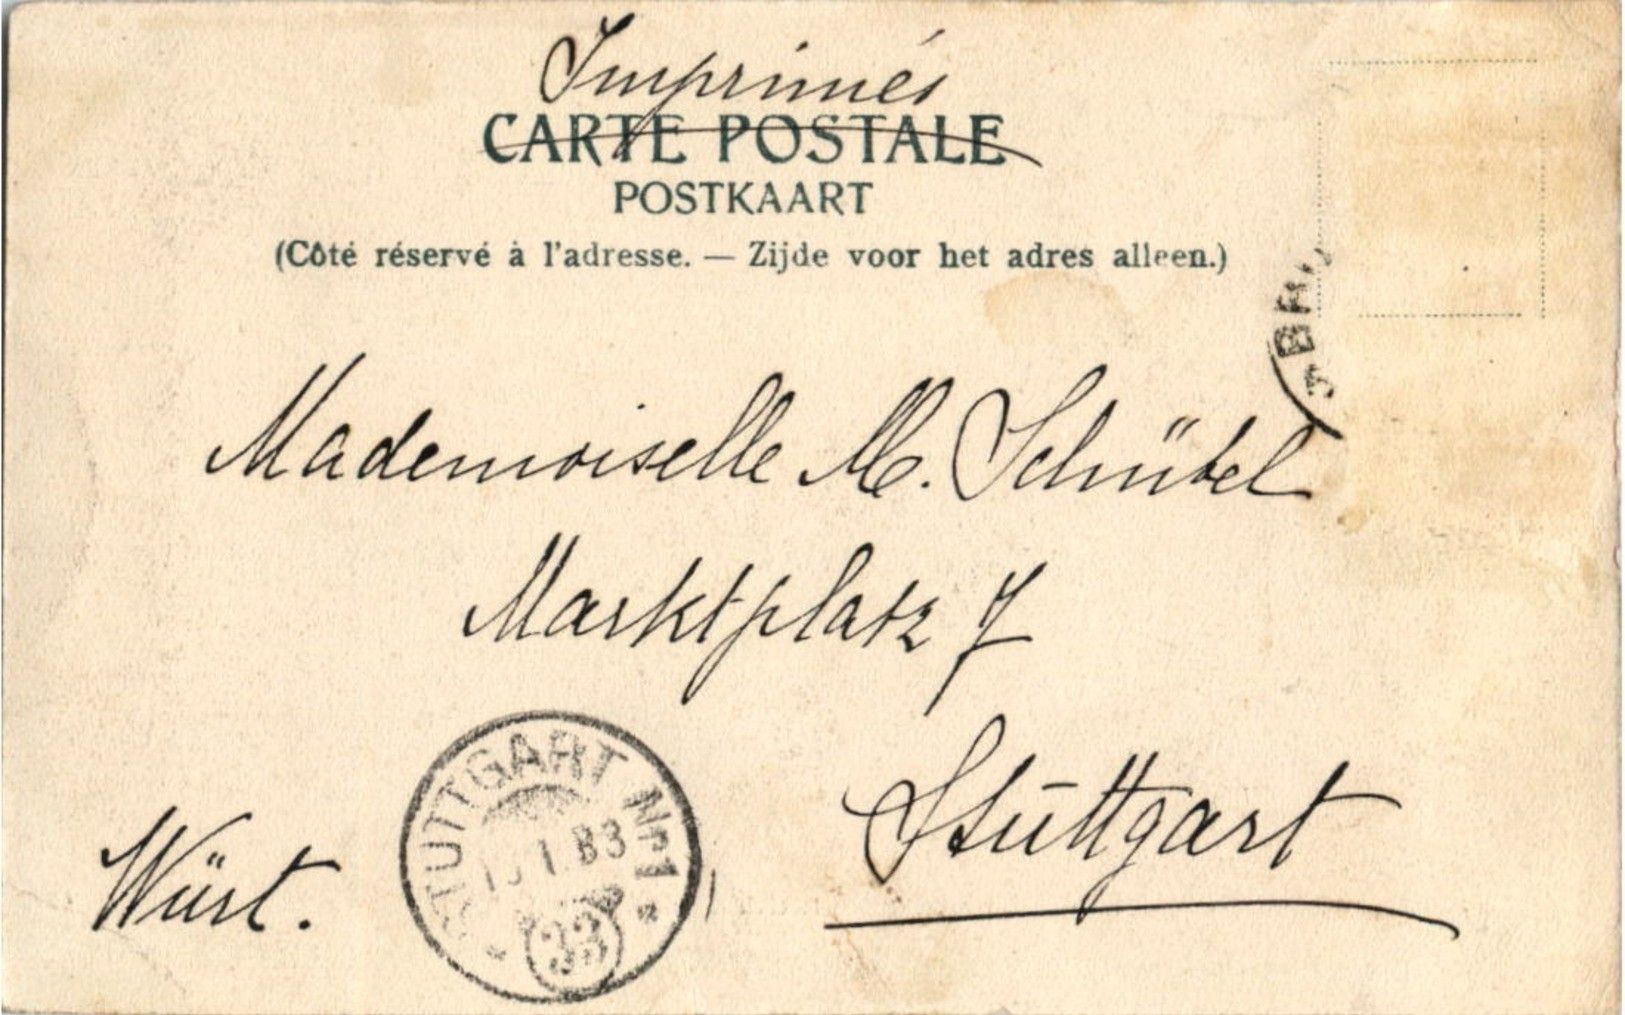 Imprimés
CARTE POSTALE
POSTKAART
(Côté réservé à l'adresse. — Zijde voor het adres alleen.)
Mademoiselle M. Schübel
Marktplatz 7
Stuttgart
Würt.
STUTTGART Nr.1
33